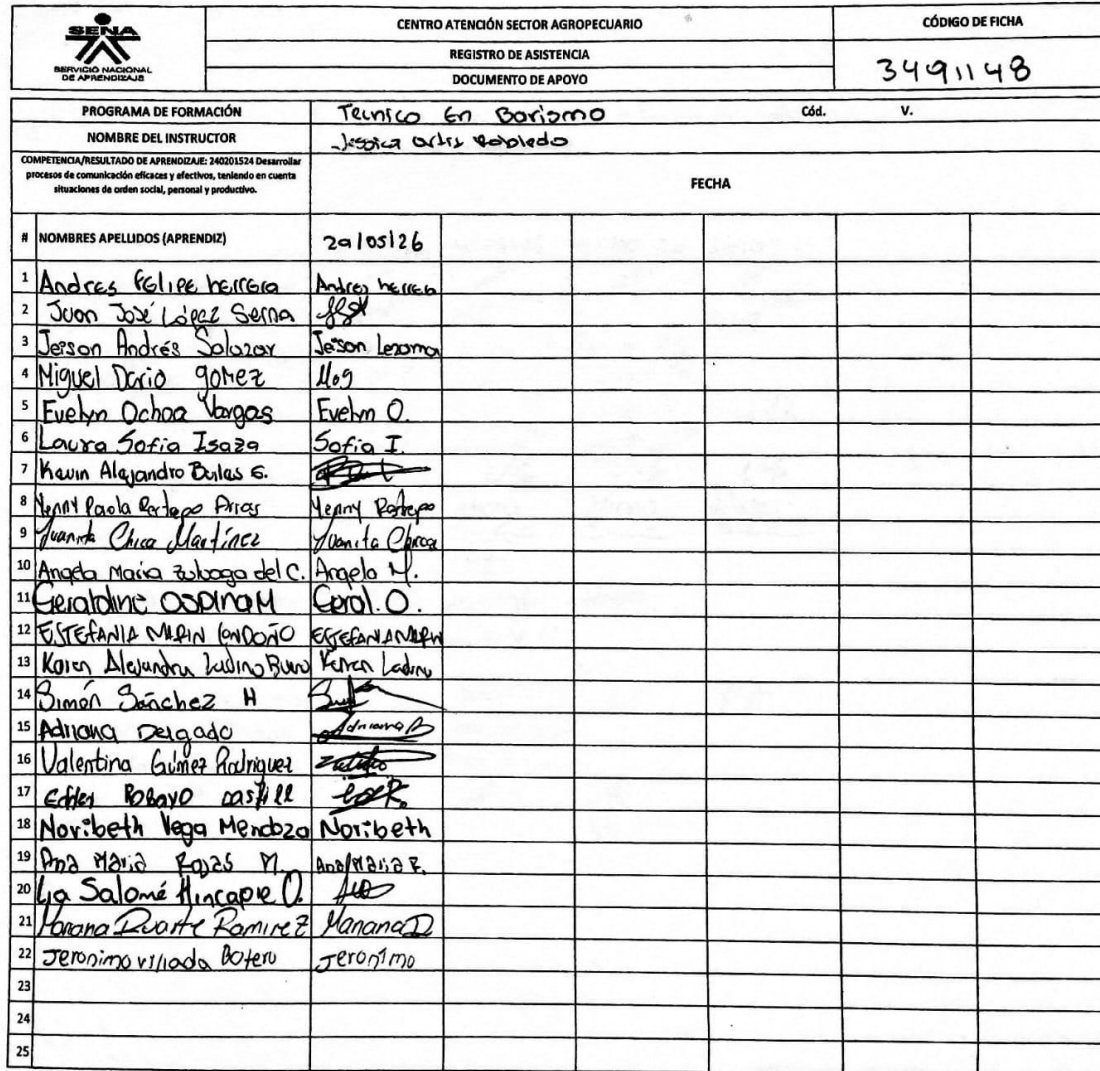 SENA
SERVICIO NACIONAL
DE APRENDIZAJE
CENTRO ATENCIÓN SECTOR AGROPECUARIO
REGISTRO DE ASISTENCIA
DOCUMENTO DE APOYO
CÓDIGO DE FICHA
3491148
PROGRAMA DE FORMACIÓN Tecnico En Barismo Cód. V.
NOMBRE DEL INSTRUCTOR Jessica Ortiz Robledo
COMPETENCIA/RESULTADO DE APRENDIZAJE: 240201524 Desarrollar
procesos de comunicación eficaces y efectivos, teniendo en cuenta
situaciones de orden social, personal y productivo.
FECHA
# NOMBRES APELLIDOS (APRENDIZ) 29/05/26
1 Andres Felipe herrera Andres herrera
2 Juan José López Serna
3 Jeison Andrés Salazar Jeison Lezama
4 Miguel Dario gomez
5 Evelyn Ochoa Vargas Evelyn O.
6 Laura Sofia Isaza Sofia I.
7 Kevin Alejandro Builes G.
8 Yenny Paola Restrepo Arias Yenny Restrepo
9 Juanita Chica Martínez Juanita Chica
10 Angela Maria Zuluaga del C. Angela M.
11 Geraldine Ospina M Geral. O.
12 ESTEFANIA MARIN LONDOÑO ESTEFANIA MARIN
13 Karen Alejandra Ladino Karen Ladino
14 Simón Sánchez H
15 Adriana Delgado Adriana D
16 Valentina Gómez Rodriguez
17 Robayo
18 Noribeth Vega Mendoza Noribeth
19 Ana Maria Rojas M. Ana Maria R.
20 Salomé Hincapie O.
21 Mariana Duarte Ramirez Mariana D
22 Jeronimo Villada Botero Jeronimo
23
24
25